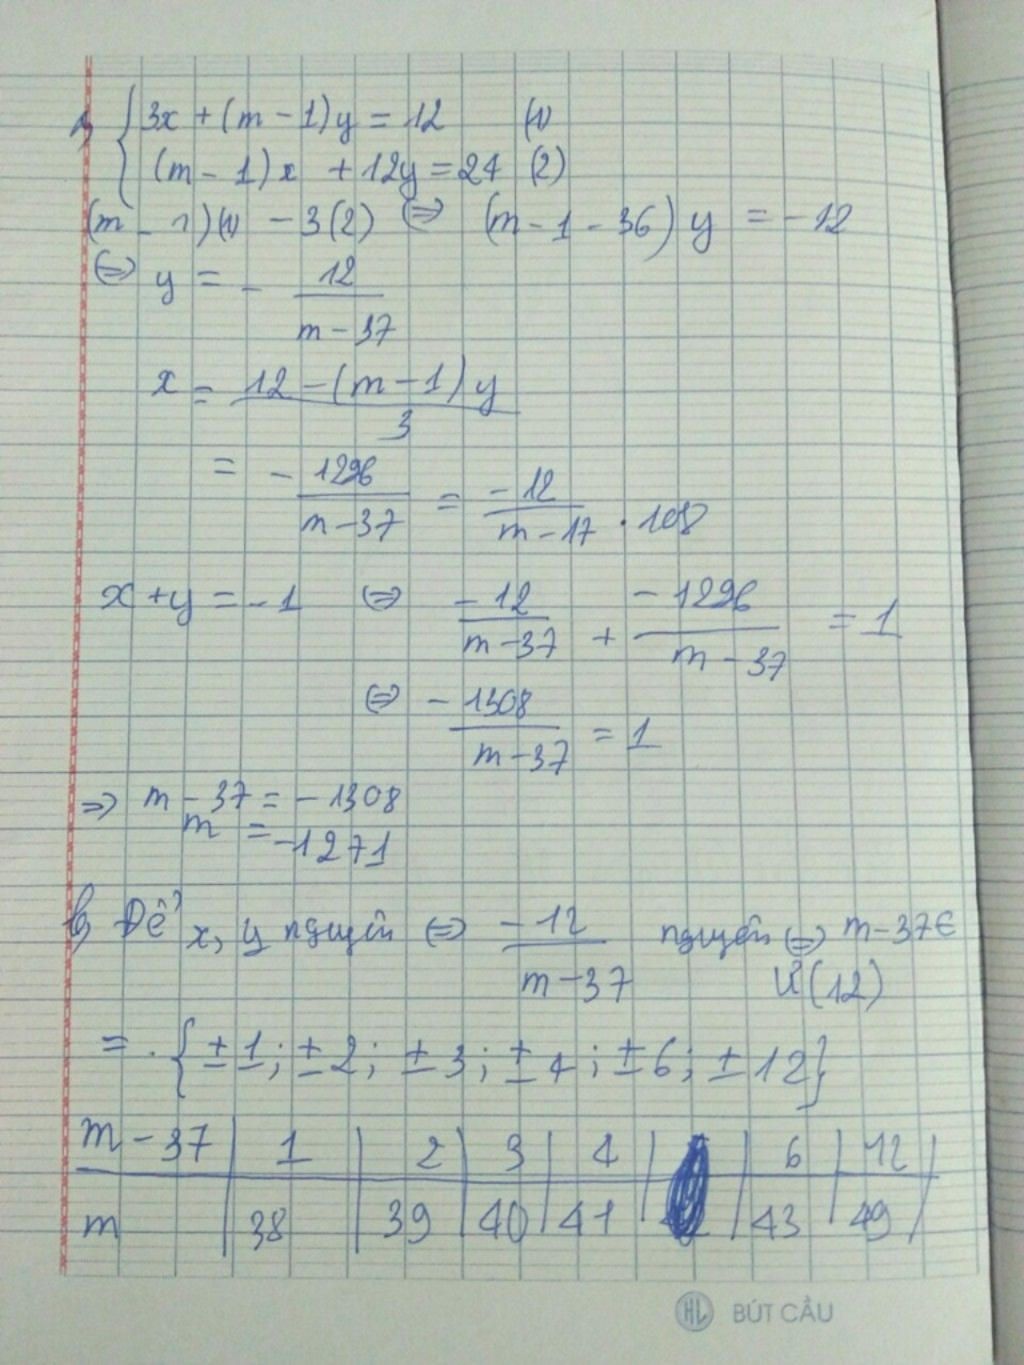 a) { 3x + (m - 1)y = 12 (1)
(m - 1)x + 12y = 24 (2)
(m - 1)(1) - 3(2) ⇔ (m - 1 - 36) y = -12
⇔ y = - 12 / (m - 37)
x = (12 - (m - 1) y) / 3
= - 1296 / (m - 37) = -12 / (m - 17) . 108
x + y = -1 ⇔ -12 / (m - 37) + -1296 / (m - 37) = 1
⇔ - 1308 / (m - 37) = 1
⇒ m - 37 = -1308
m = -1271
b) Để x, y nguyên ⇔ -12 / (m - 37) nguyên ⇔ m - 37 ∈
Ư(12)
= . {±1; ±2; ±3; ±4; ±6; ±12}
m - 37 | 1 | 2 | 3 | 4 | | 6 | 12 |
m | 38 | 39 | 40 | 41 | | 43 | 49 |
HL BÚT CẦU